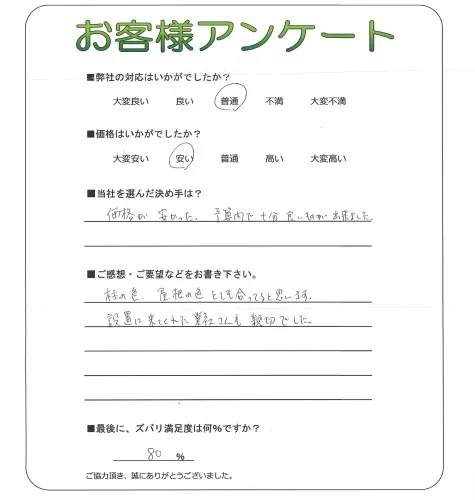 お客様アンケート
■弊社の対応はいかがでしたか？
大変良い 良い 普通 不満 大変不満
■価格はいかがでしたか？
大変安い 安い 普通 高い 大変高い
■当社を選んだ決め手は？
価格が 安かった。 予算内で 十分 良い物が 出来ました
■ご感想・ご要望などをお書き下さい。
柱の色、屋根の色 とても合ってると思います。
設置に来てくれた 業者さんも 親切でした。
■最後に、ズバリ満足度は何%ですか？
80 %
ご協力頂き、誠にありがとうございました。